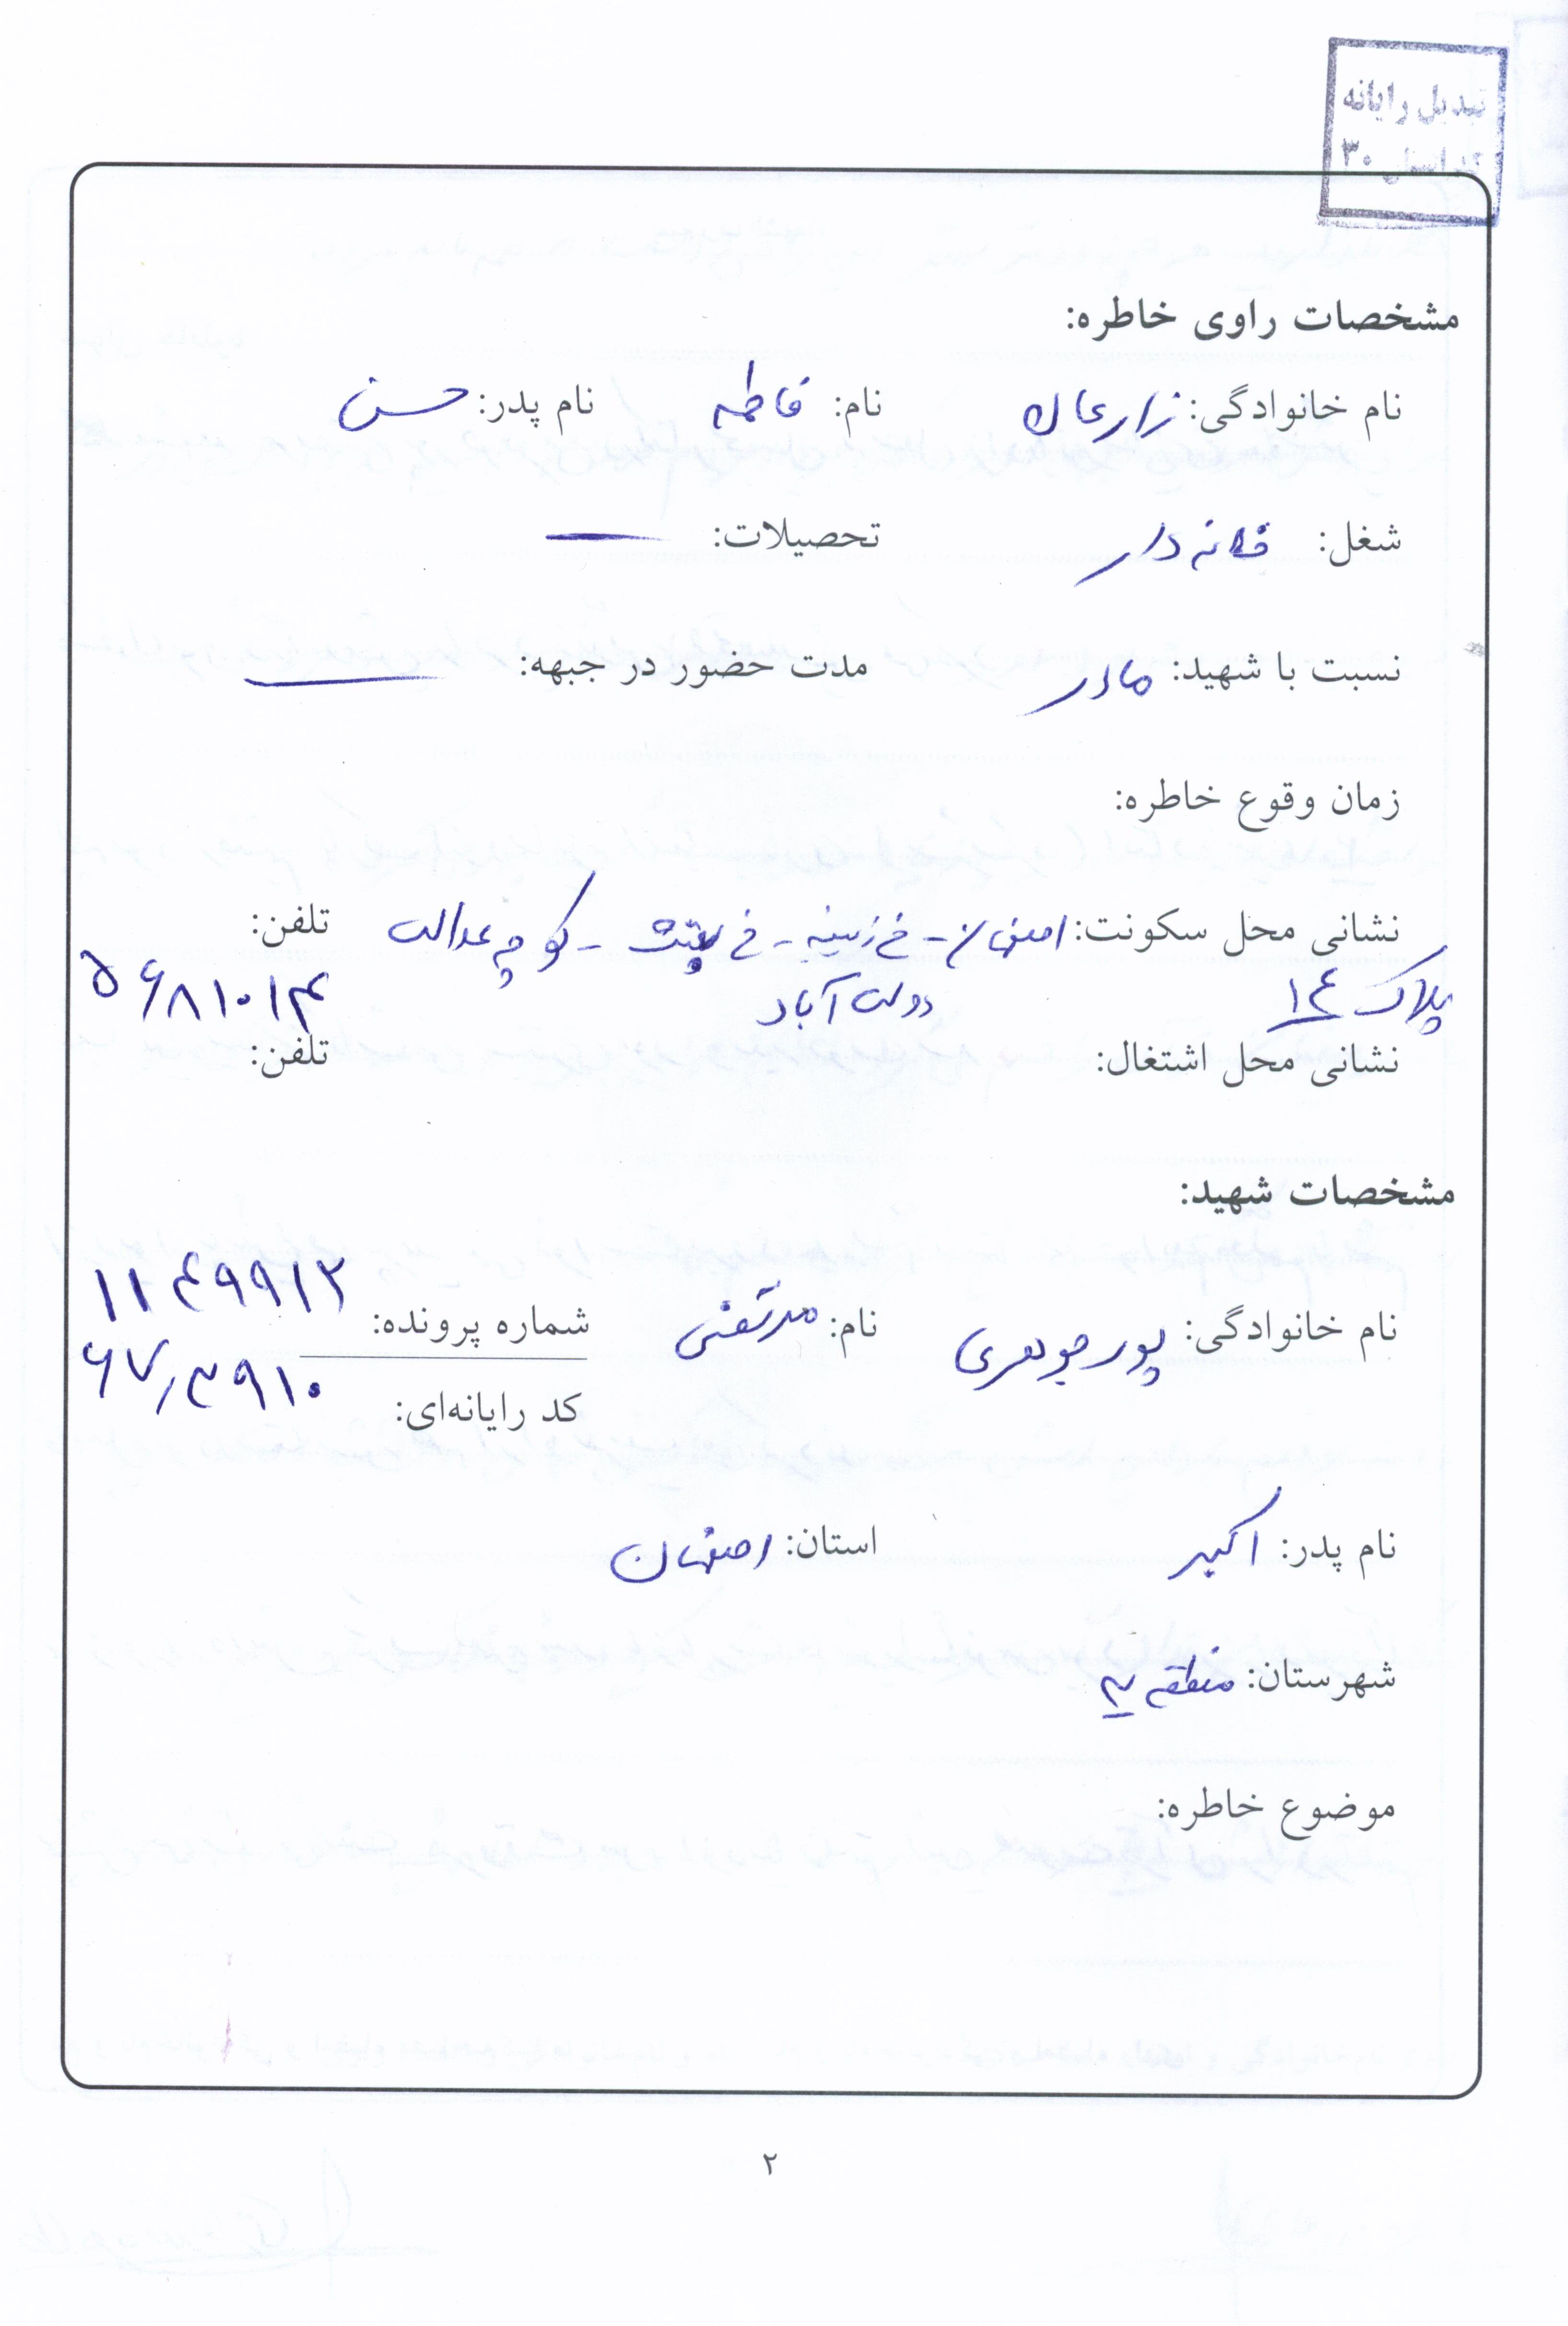 تبدیل رایانه
کد استان ۳۰
مشخصات راوی خاطره:
نام خانوادگی: زارعان نام: فاطمه نام پدر: حسن
شغل: خانه دار تحصیلات: —
نسبت با شهید: مادر مدت حضور در جبهه: —
زمان وقوع خاطره:
نشانی محل سکونت: اصفهان - خ زینبیه - خ بهشت - کوچه عدالت تلفن:
پلاک ۱۴ دولت آباد ۵۶۸۱۰۱۴
نشانی محل اشتغال: تلفن:
مشخصات شهید:
نام خانوادگی: پورجوهری نام: مرتضی شماره پرونده: ۱۱۴۹۹۱۲
کد رایانه‌ای: ۶۷/۳۹۱۰
نام پدر: اکبر استان: اصفهان
شهرستان: منطقه ۳
موضوع خاطره:
۲